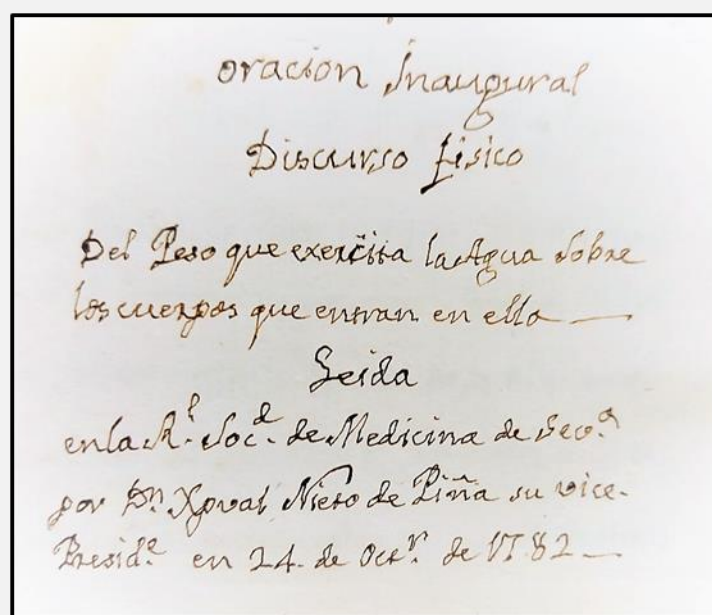 oracion Inaugural
Discurso fisico
Del Peso que exercita la Agua sobre
los cuerpos que entran en ella
Leida
en la R.l Soc.d de Medicina de Sev.a
por Dn. Xpval Nieto de Piña su vice-
Presid.e en 24 de Oct.r de 1782